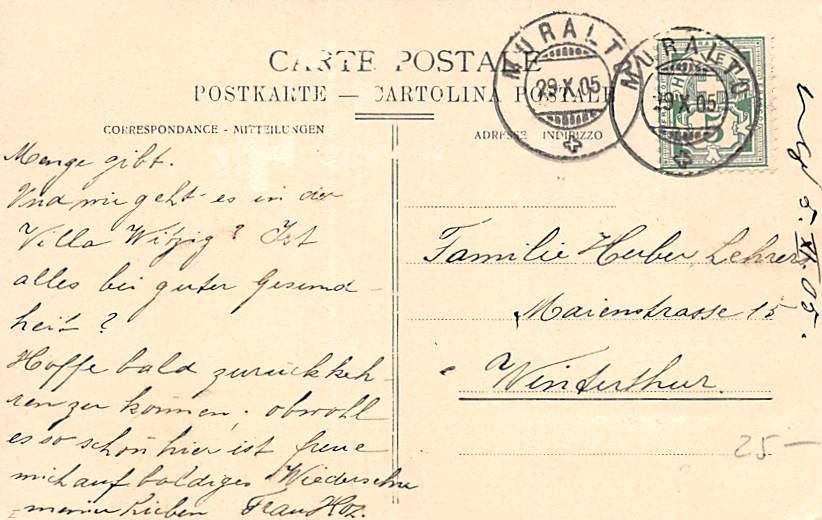 CARTE POSTALE
POSTKARTE — CARTOLINA POSTALE
CORRESPONDANCE - MITTEILUNGEN
ADRESSE INDIRIZZO
MURALTO
29.X.05
MURALTO
29.X.05
HELVETIA
5
Menge gibt.
Und wie geht es in der
Villa Witzig? Ist
alles bei guter Gesund-
heit?
Hoffe bald zurückkeh-
ren zu können, obwohl
es so schön hier ist freue
mich auf baldiges Wiedersehn
meiner Lieben Frau Hoz.
Familie Huber, Lehrer
Maienstrasse 15
Winterthur.
5. XI. 05.
25—